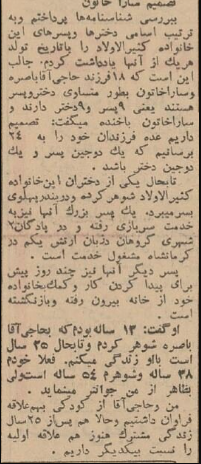 تصمیم سارا خاتون
ببررسی شناسنامه‌ها پرداختم وبه
ترتیب اسامی دخترها وپسرهای این
خانواده کثیرالاولاد را باتاریخ تولد
هریك از آنها یادداشت کردم. جالب
این است که ۱۸فرزند حاجی‌آقاباصره
وساراخاتون بطور متساوی دختروپسر
هستند یعنی ۹پسر و۹دختر دارند و
ساراخاتون باخنده میگفت: تصمیم
داریم عده فرزندان خود را به ۲۴
برسانیم که یك دوجین پسر و یك
دوجین دختر باشد .
تابحال یکی از دختران این‌خانواده
کثیرالاولاد شوهر کرده ودربندرپهلوی
بسرمیبرد. یك پسر بزرگ آنها نیزبه
خدمت سربازی رفته و در پادگان۲
شهری گروهان دژبان ارتش یکم در
کرمانشاه مشغول خدمت است .
پسر دیگر آنها نیز چند روز پیش
برای پیدا کردن کار وکمك‌بخانواده
خود از خانه بیرون رفته وبازنگشته
است .
اوگفت: ۱۳ ساله‌بودم‌که بحاجی‌آقا
باصره شوهر کردم وتابحال ۲۵ سال
است بااو زندگی میکنم. فعلا خودم
۳۸ ساله وشوهرم ۵۴ ساله است‌ولی
بظاهر از من جوانتر مینماید .
من وحاجی‌آقا از کودکی بهم‌علاقه
فراوان داشتیم وحالا هم پس‌از ۲۵سال
زندگی مشترك هنوز هم علاقه اولیه
را نسبت بیکدیگر داریم .